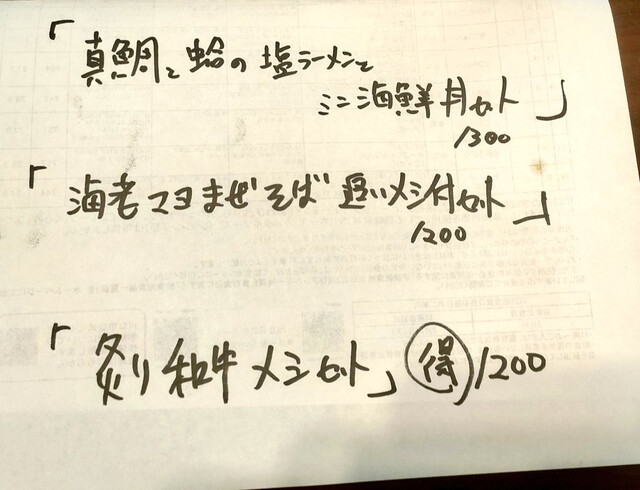 「真鯛と蛤の塩ラーメンと
ミニ海鮮丼セット」
1300
「海老マヨまぜそば 追いメシ付セット」
1200
「炙り和牛メシセット」 得 1200